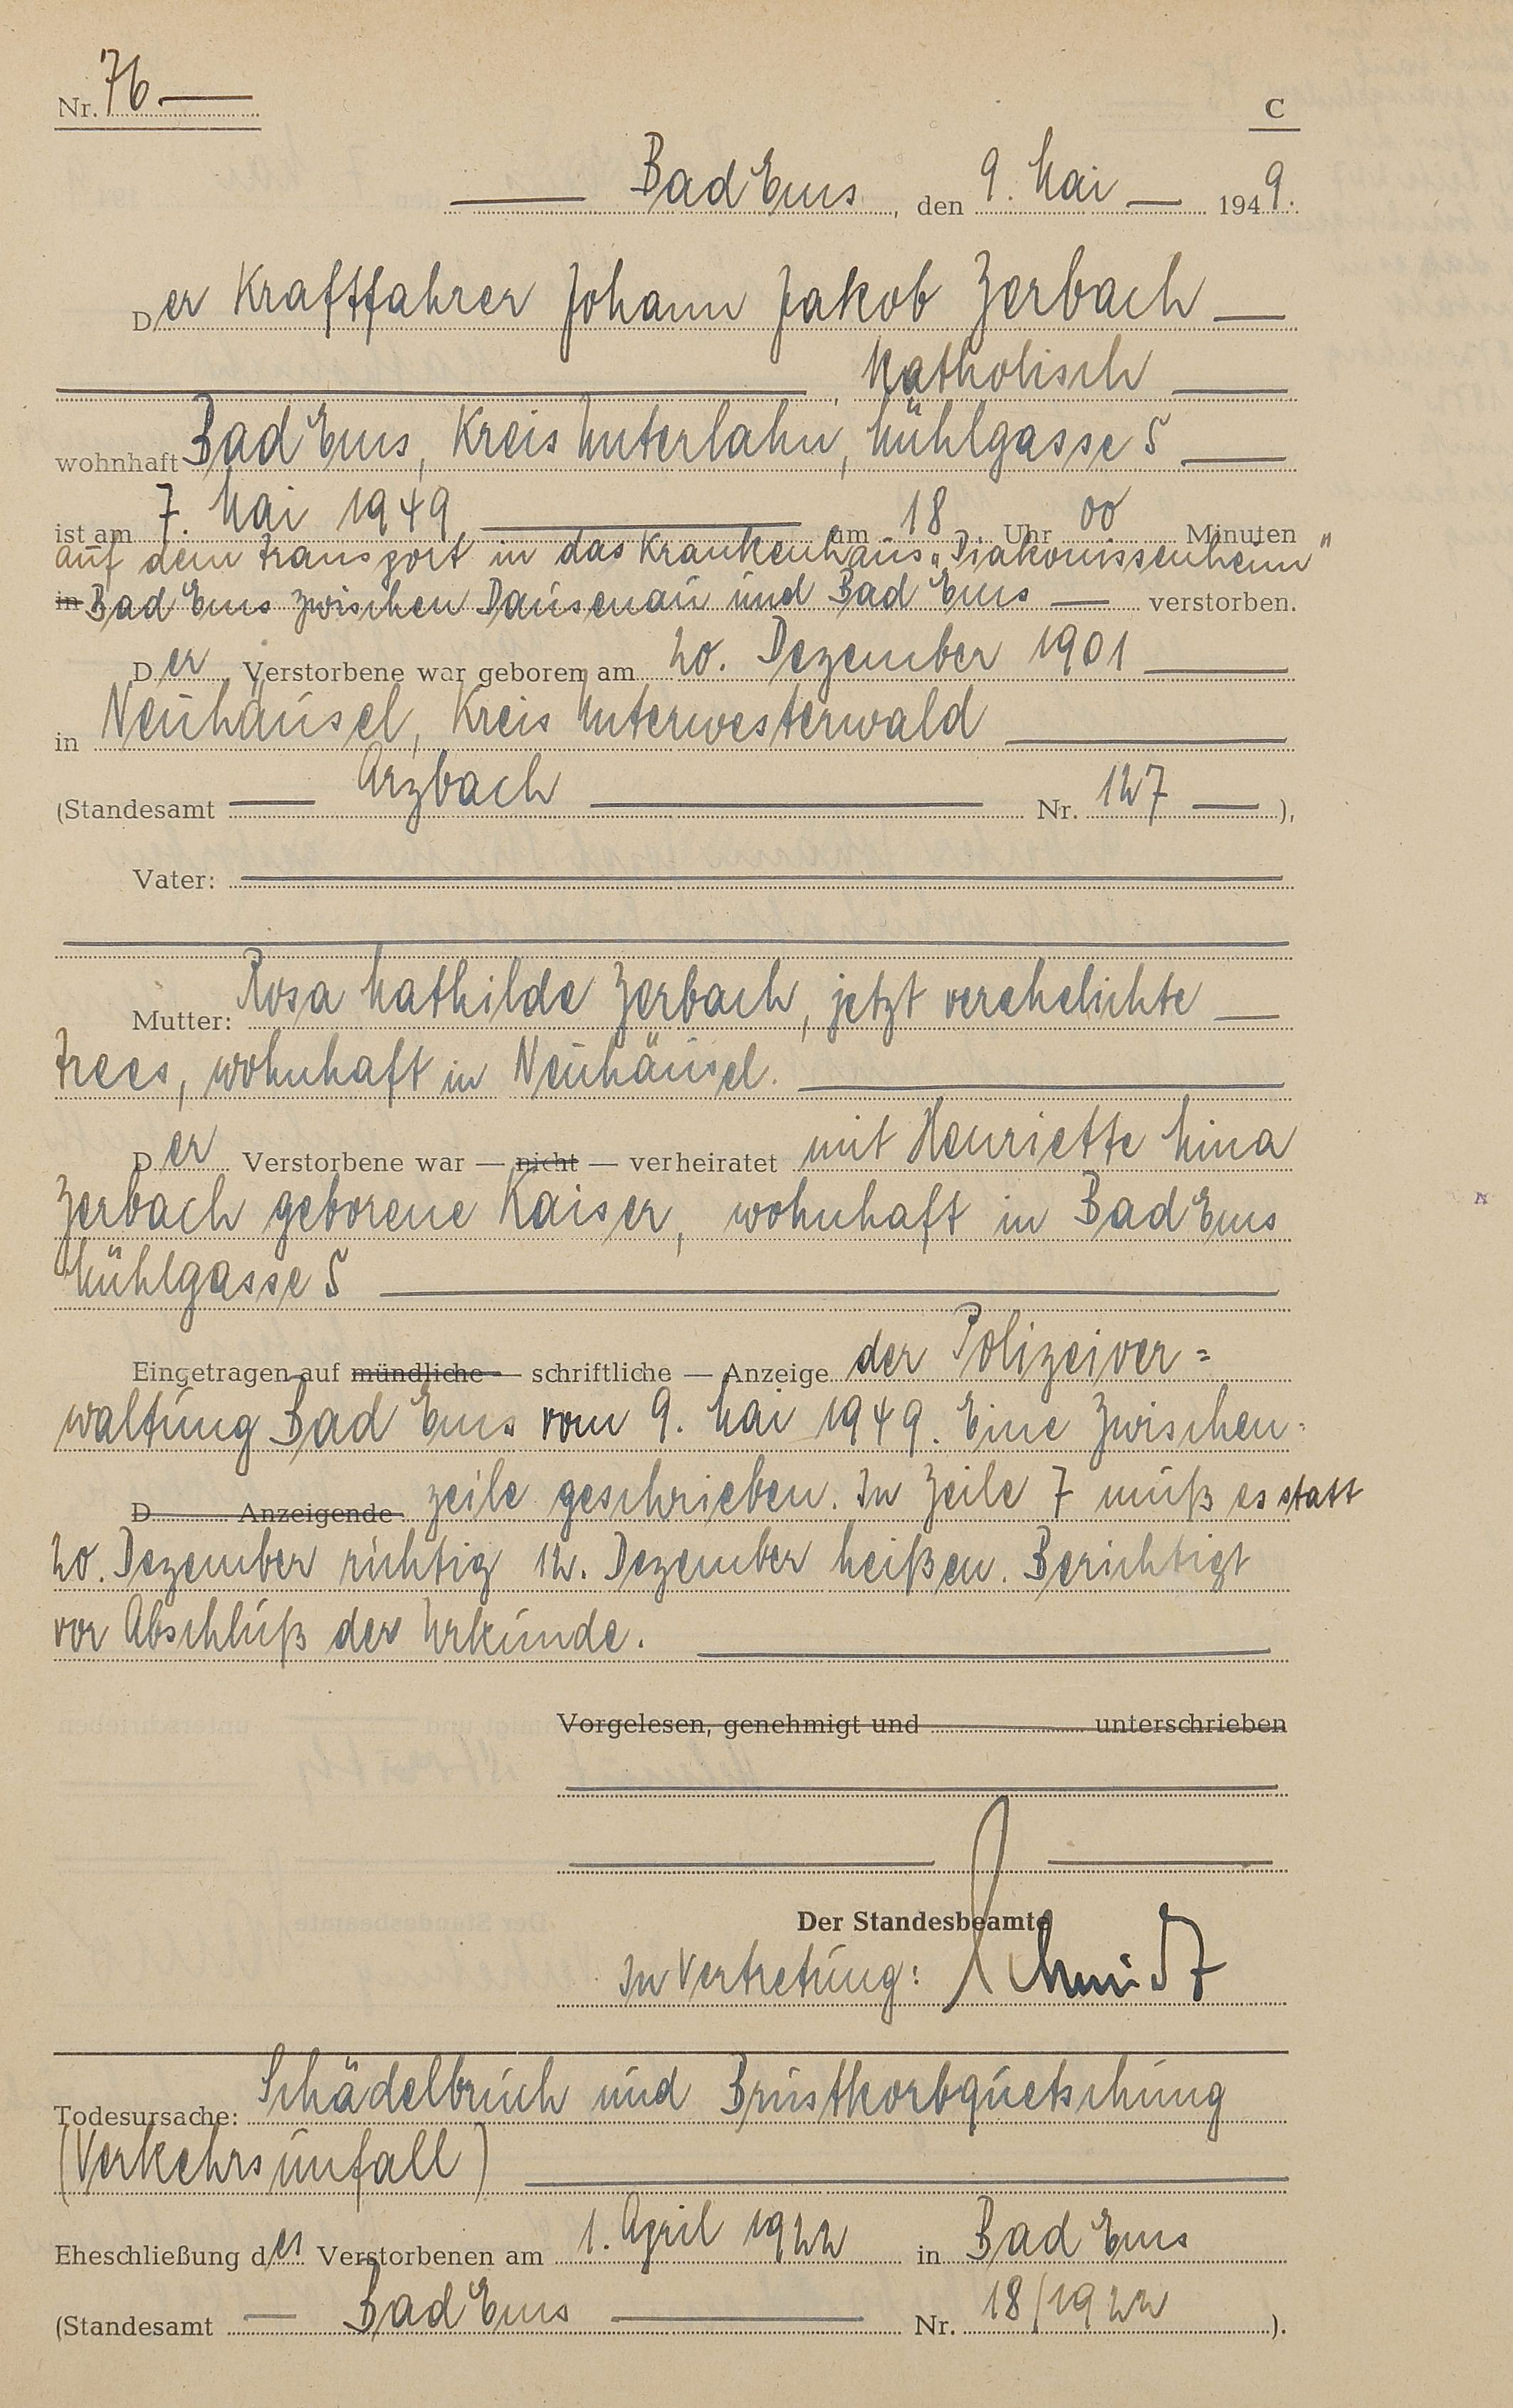 Nr. 76.
C
Bad Ems, den 9. Mai 1949.
Der Kraftfahrer Johann Jakob Zerbach
, katholisch
wohnhaft Bad Ems, Kreis Unterlahn, Mühlgasse 5
ist am 7. Mai 1949 um 18 Uhr 00 Minuten
auf dem Transport in das Krankenhaus „Diakonissenheim"
in Bad Ems zwischen Dausenau und Bad Ems verstorben.
Der Verstorbene war geboren am 20. Dezember 1901
in Neuhäusel, Kreis Unterwesterwald
(Standesamt Arzbach Nr. 127 ),
Vater:
Mutter: Rosa Mathilde Zerbach, jetzt verehelichte
Trees, wohnhaft in Neuhäusel.
Der Verstorbene war — nicht — verheiratet mit Henriette Mina
Zerbach geborene Kaiser, wohnhaft in Bad Ems
Mühlgasse 5
Eingetragen auf mündliche — schriftliche — Anzeige der Polizeiver=
waltung Bad Ems vom 9. Mai 1949. Eine Zwischen=
D Anzeigende zeile geschrieben. In Zeile 7 muß es statt
20. Dezember richtig 12. Dezember heißen. Berichtigt
vor Abschluß der Urkunde.
Vorgelesen, genehmigt und unterschrieben
Der Standesbeamte
In Vertretung: Schmidt
Todesursache: Schädelbruch und Brustkorbquetschung
(Verkehrsunfall)
Eheschließung des Verstorbenen am 1. April 1922 in Bad Ems
(Standesamt Bad Ems Nr. 18/1922 ).